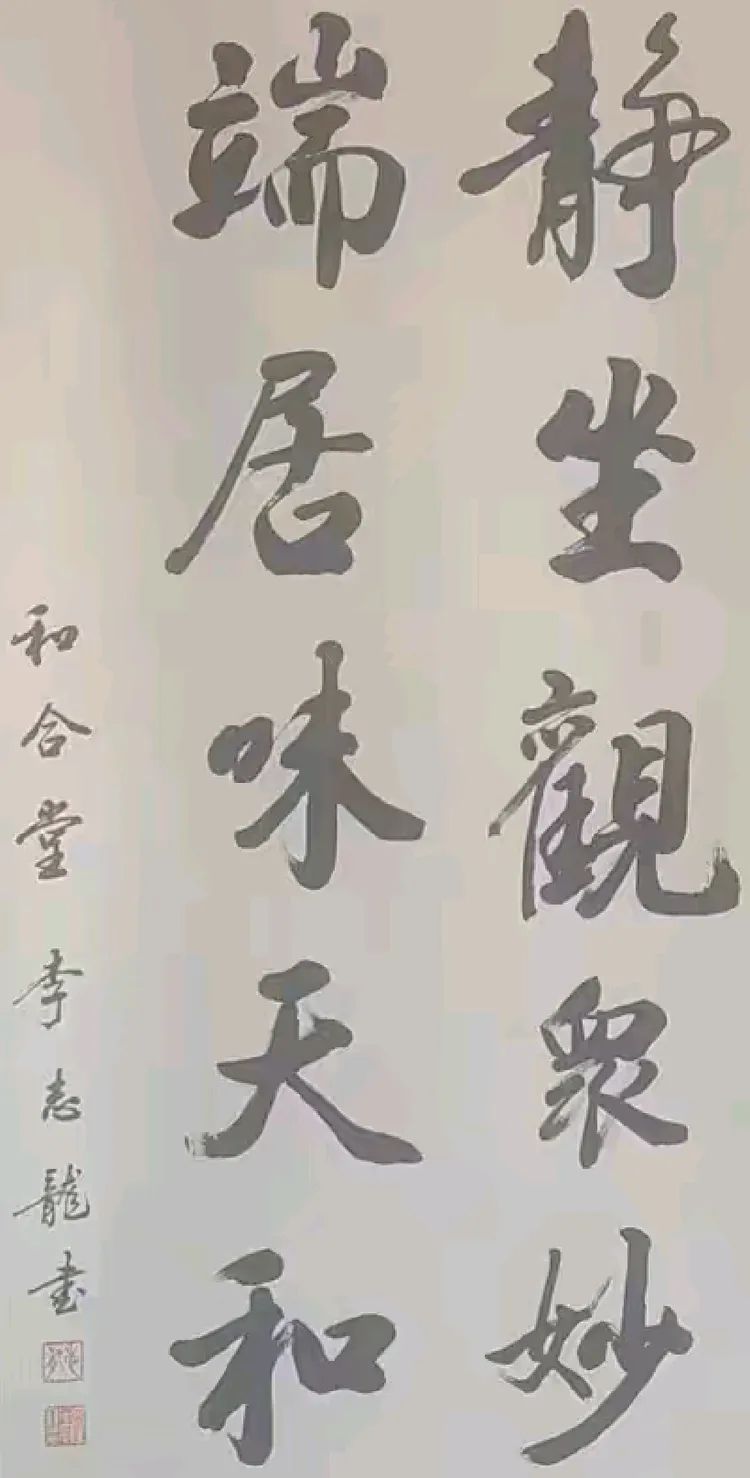 靜坐觀眾妙
端居味天和
和合堂李志龍书